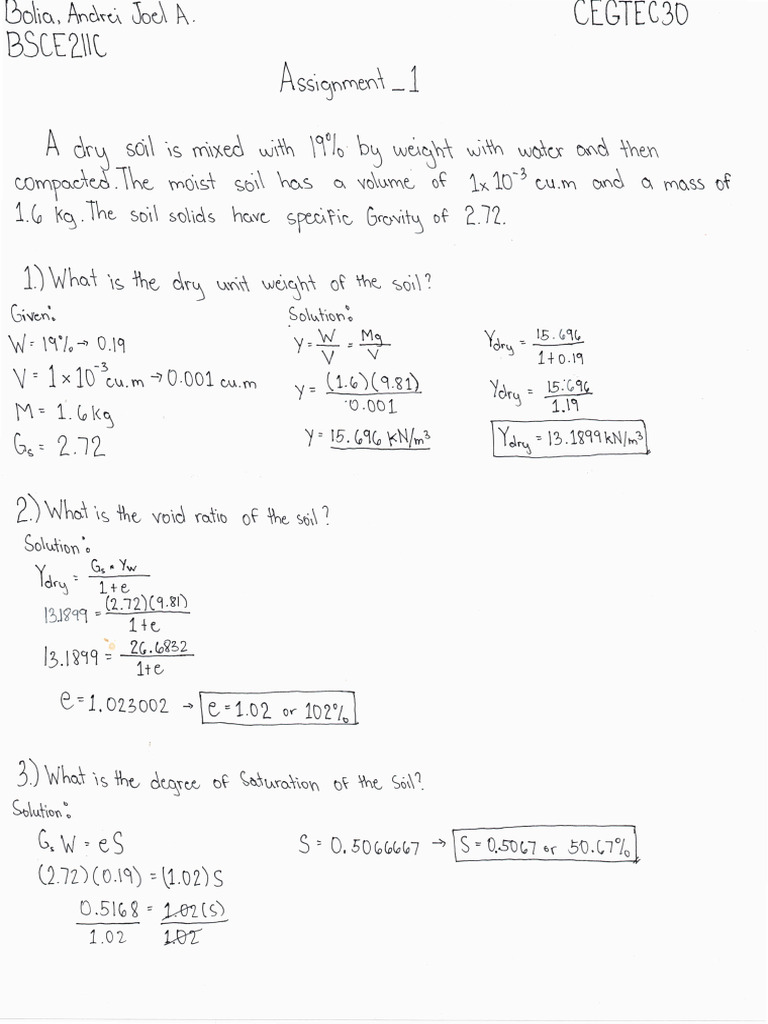 Bolia, Andrei Joel A.
CEGTEC30
BSCE211C
Assignment_1
A dry soil is mixed with 19% by weight with water and then
compacted. The moist soil has a volume of 1x10⁻³ cu.m and a mass of
1.6 kg. The soil solids have specific Gravity of 2.72.
1.) What is the dry unit weight of the soil?
Given:
W = 19% → 0.19
V = 1 x 10⁻³ cu.m → 0.001 cu.m
M = 1.6 kg
Gs = 2.72
Solution:
γ = W/V = Mg/V
γ = (1.6)(9.81)/0.001
γ = 15.696 kN/m³
γdry = 15.696/1+0.19
γdry = 15.696/1.19
γdry = 13.1899 kN/m³
2.) What is the void ratio of the soil?
Solution:
γdry = Gs * γw/1+e
13.1899 = (2.72)(9.81)/1+e
13.1899 = 26.6832/1+e
e = 1.023002 → e = 1.02 or 102%
3.) What is the degree of Saturation of the Soil?
Solution:
Gs W = eS
(2.72)(0.19) = (1.02) S
0.5168/1.02 = 1.02(S)/1.02
S = 0.5066667 → S = 0.5067 or 50.67%